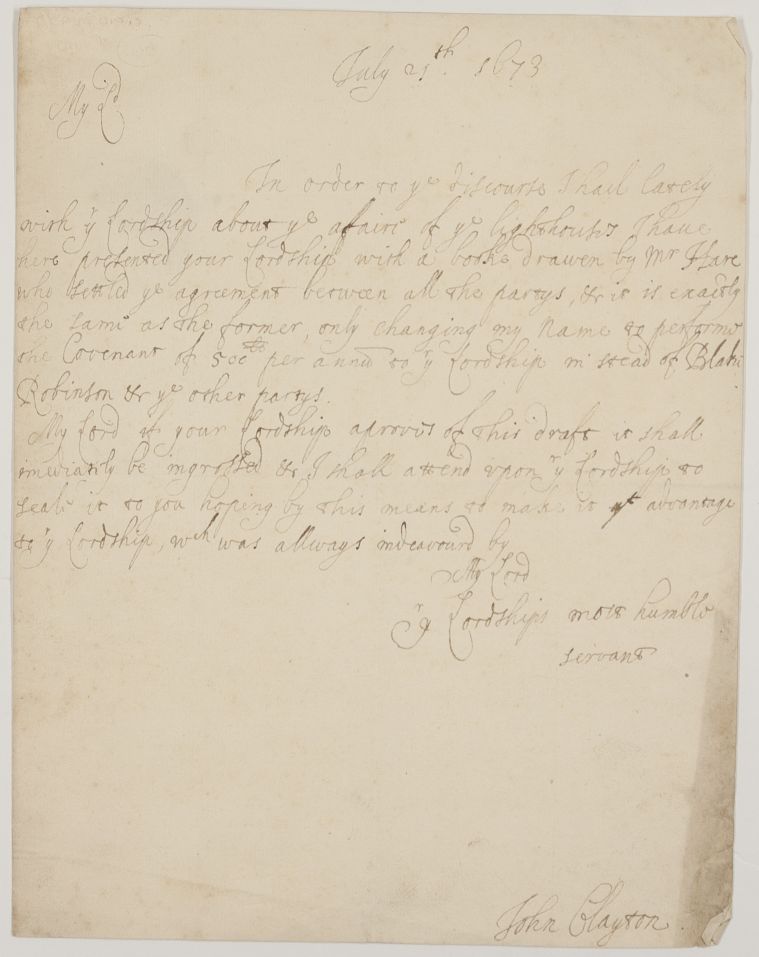 July 21th. 1673
My Ld
In order to ye discourse I had lately
with yr Lordship about ye affairs of ye lighthouses I have
here presented your Lordship with a booke drawen by Mr Hare
who setled ye agreement between all the partys, & it is exactly
the same as the former, only changing my Name to performe
the Covenant of 500 per annū to yr Lordship in stead of Blake
Robinson & ye other partys.
My Lord if your Lordship aproves of this draft it shall
imediately be ingrossed & I shall attend upon yr Lordship to
seale it to you hoping by this means to make it yt advantage
to yr Lordship, wch was allways indeavourd by
My Lord
yr Lordships most humble
servant
John Clayton.